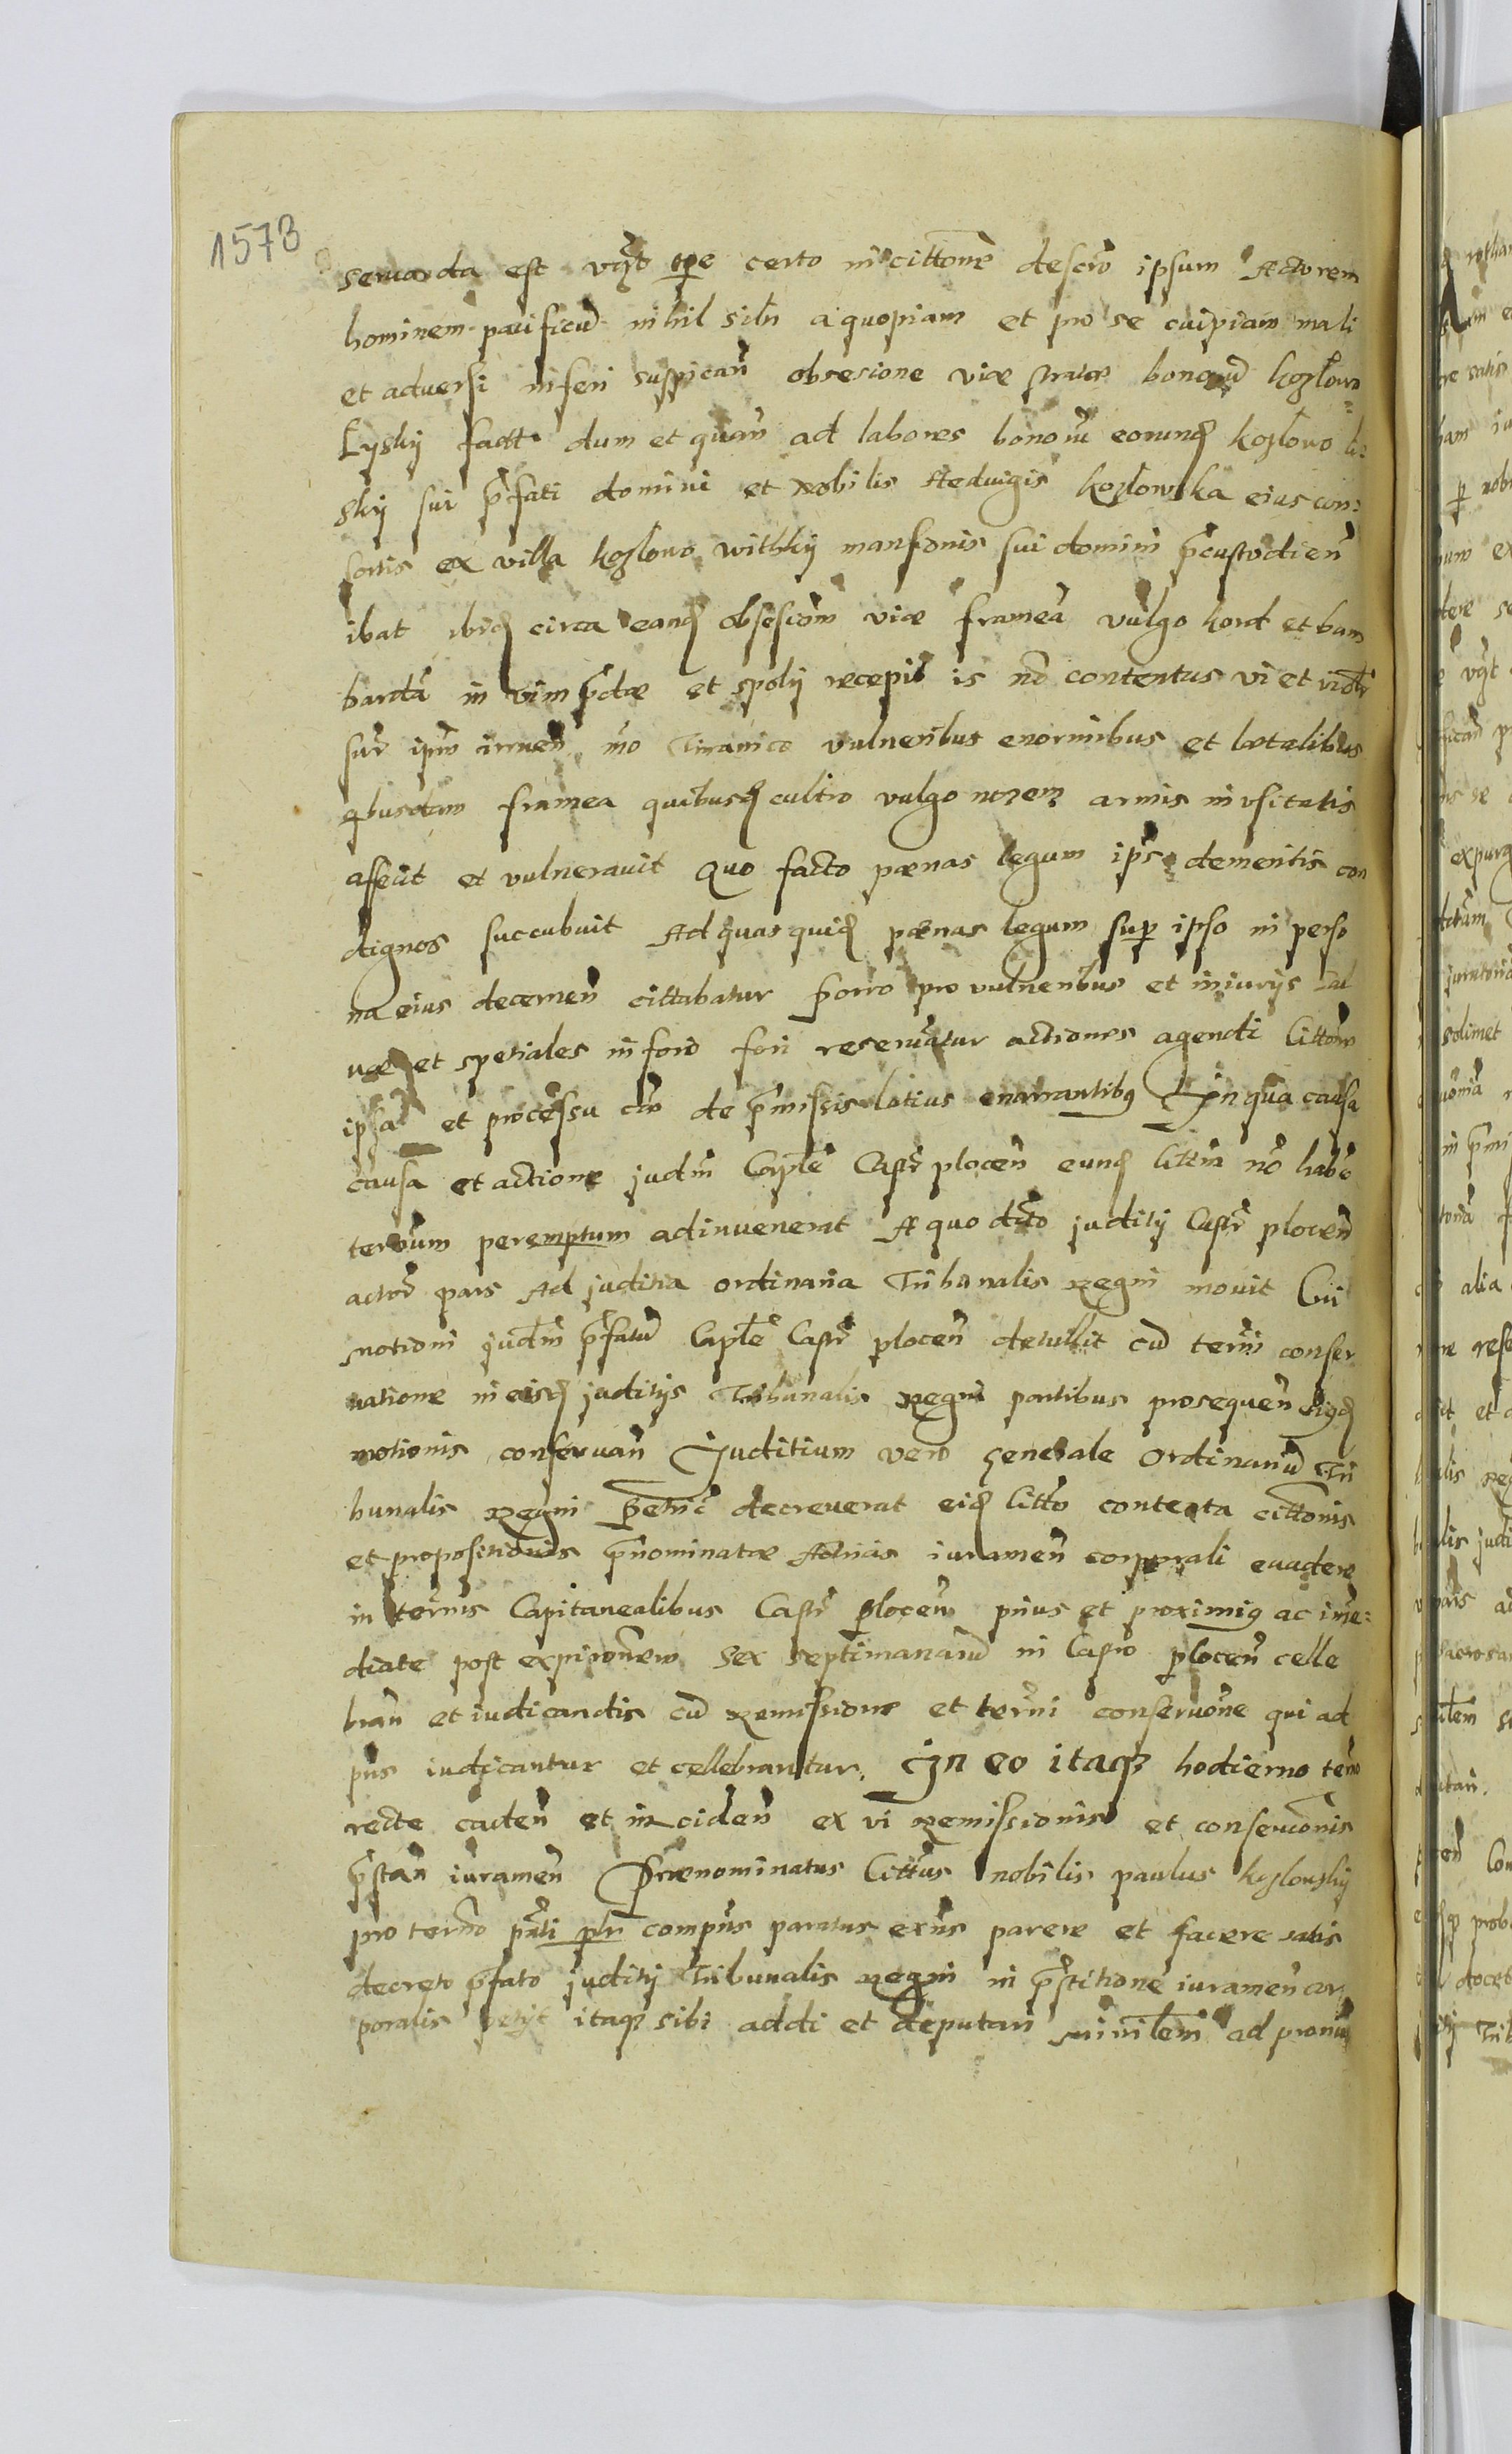 1573
seruanda est vigt tpe certo in cittone descro ipsum Actorem
hominem pacificu nihil siln a quopiam et pro se cuipiam mali
et aduersi inferi suspican obsesione viæ stratæ bonoru kozlowo
Lysky fact dum et quan ad labores bonoru eorunde kozlowo li=
sky sui pfati domini et nobilis Heduigis kozlowska eius con=
sortis ex villa kozlowo withky mansionis sui domini pcustodien
ibat ibide circa eande obsesionem viæ frameā vulgo kord et bam
bardā in vim pdæ et spoly recepit is nō contentus vi et violr
sur ipm irruen mo Tiranico vulneribus enormibus et lætalibus
qbusdam framea quibusde cultro vulgo nozem armis in vsitatis
affecit et vulnerauit Quo facto pænas legum ips demeritis con
dignos succubuit Ad quas quide pænas legum sup ipso in perso
na eius decernen cittabatur porro pro vulneribus et iniurys sal
uæ et spetiales in foro fori reseruātur actiones agendi Cittone
ipsa et processu cam de pmissis latius enarrantibus In qua causa
causa et actione judm Caple Castr plocen eunde Cittm nō habe
terminum peremptum adinuenerat A quo dcto judity Castr plocen
actor pars Ad juditia ordinaria Tribunalis Regni mouit Cui
motioni judm pfatu Caple Castr plocen detullit cu termi conser
uatione in eisde juditys Tribunalis Regni partibus prosequen
motionis conseruan Juditium vero generale Ordinariu Tri
bunalis Regni decreuerat eide litto contenta cittonis
et propositionis pnominatæ Actricis iuramen corporali euadere
in termis Capitanealibus Castr plocen prius et proximis ac ime=
diate post expironem sex septimanaru in Castro plocen celle
bran et iudicandis cu Remissione et termi conseruone qui ad
pns iudicantur et cellebrantur. In eo itaq hodierno termo
recte caden et inciden ex vi Remissionis et conseruonis
pstan iuramen Prænominatus Cittus nobilis paulus kozlowsky
pro termo pnti plr compns paratus exns parere et facere satis
decreto pfato judity Tribunalis Regni in pstitione iuramen cor
poralis petyt itaq sibi addi et deputari ministlem ad pronu